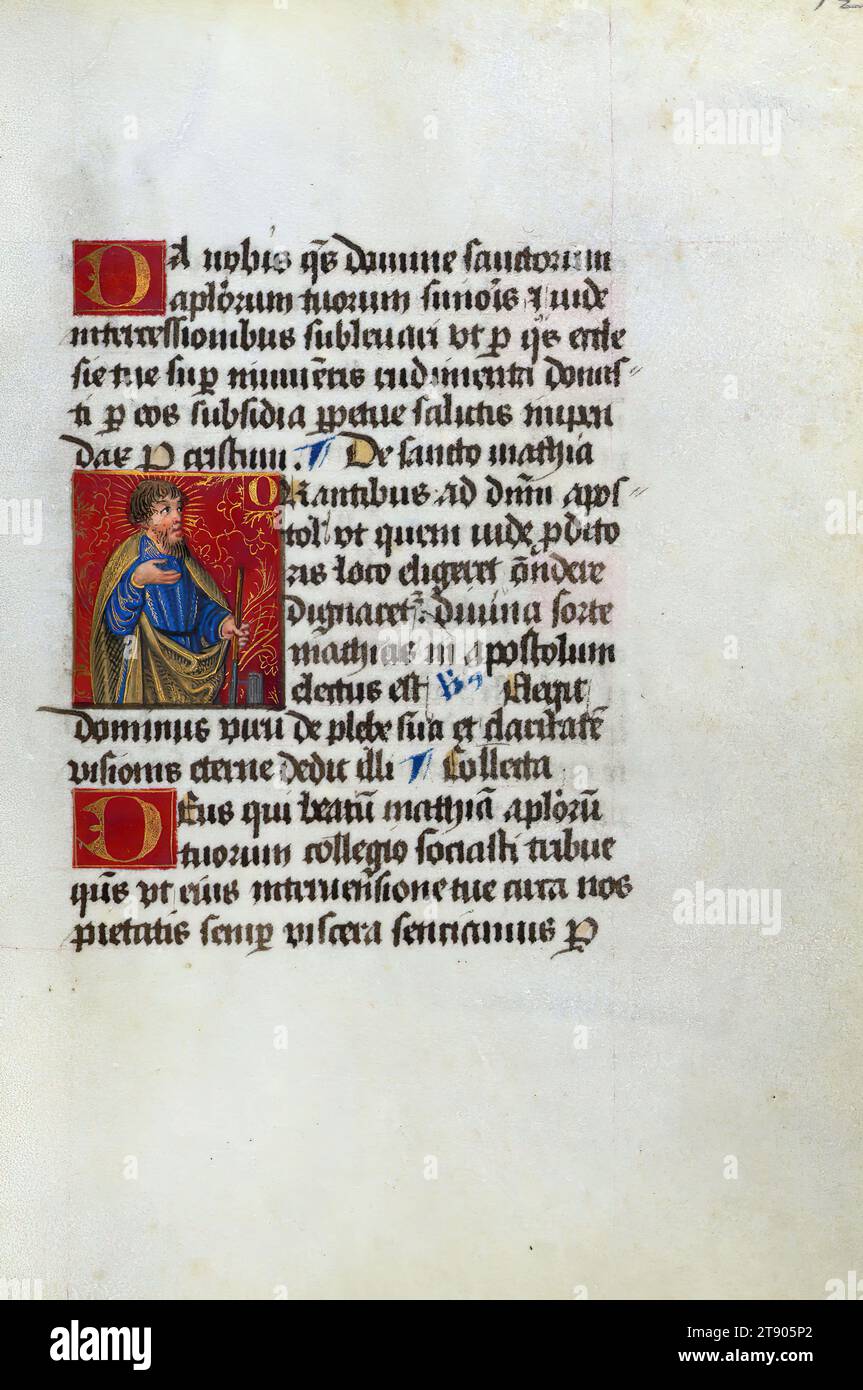 DA nobis q̄s domine sanctorum
apl̄orum tuorum simōis ⁊ iude
intercessionibus subleuari vt p̲ q̄s eccle
sie tue sup̲ni mun̄eris rudimenta donas
ti p̲ eos subsidia p̲petue salutis inpen
dat P̲ cristum. ¶ De sancto mathia
ORantibus ad dn̄m apos
tol̄ vt quem iude p̲dito
ris loco eligeret ōndere
dignaret᷑. diuina sorte
mathias in apostolum
electus est Elegit
dominus viru de plebe sua et claritatē
visionis eterne dedit illi ¶ Collecta
DEus qui beatū mathiā apl̄orū
tuorum collegio sociasti tribue
qūs vt eius interuensione tue circa nos
pietatis semp̲ viscera senciamus P̲
alamy
Image ID: 2T905P2
www.alamy.com